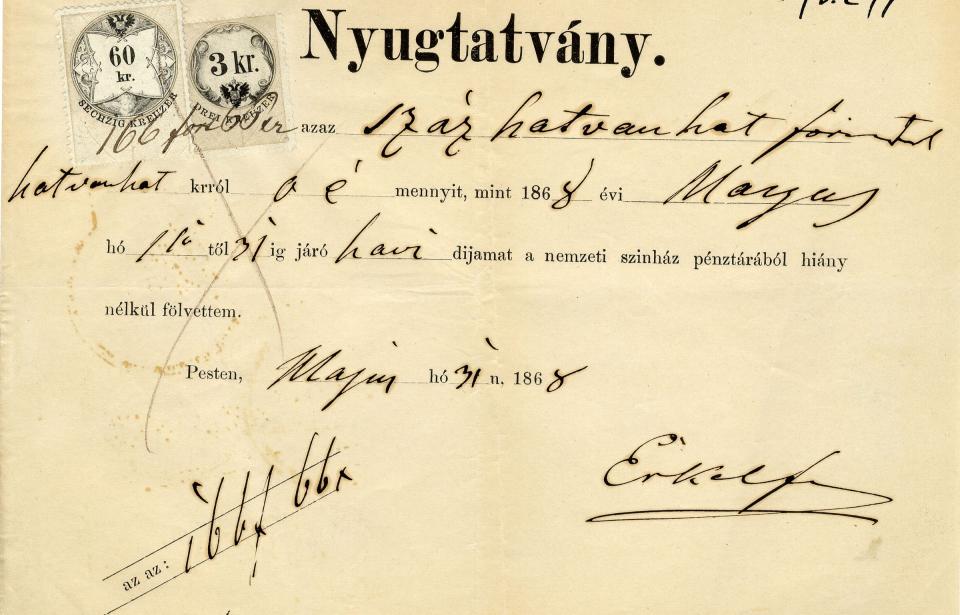 Nyugtatvány.
60
kr.
SECHZIG KREUZER
3 kr.
DREI KREUZER
166 for 66 kr azaz száz hatvanhat forintról
hatvanhat krról o é mennyit, mint 1868 évi Majus
hó 1ső től 31 ig járó havi dijamat a nemzeti szinház pénztárából hiány
nélkül fölvettem.
Pesten, Majus hó 31 n, 1868
Erkel F
az az: 166 f 66 x